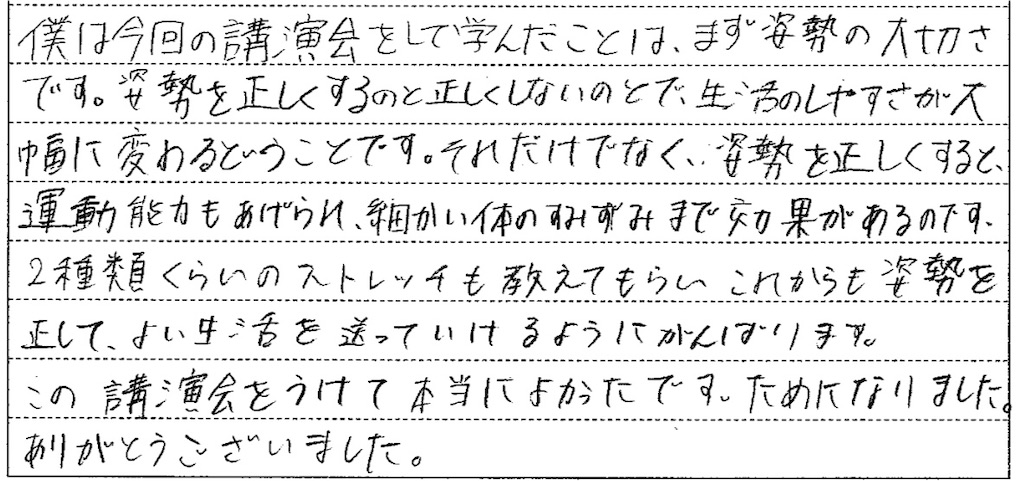 僕は今回の講演会をして学んだことは、まず姿勢の大切さ
です。姿勢を正しくするのと正しくしないのとで、生活のしやすさが大
幅に変わるということです。それだけでなく、姿勢を正しくすると、
運動能力もあげられ、細かい体のすみずみまで効果があるのです。
2種類くらいのストレッチも教えてもらい これからも姿勢を
正して、よい生活を送っていけるようにがんばります。
この講演会をうけて本当によかったです。ためになりました。
ありがとうございました。